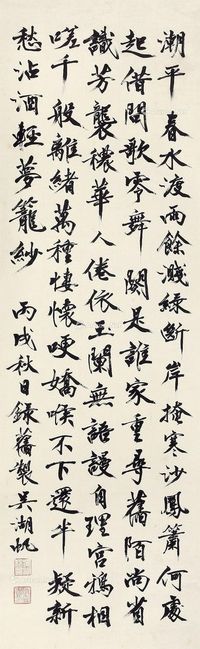 潮平春水渡雨餘濺綠斷岸捲寒沙鳳簫何處
起借問歌零舞闋是誰家重尋舊陌尚省
識芳襲穠華人倦依玉闌無語謾自理宮鴉相
嗟千般離緒萬種悽懷哽嬌喉不下還半凝新
愁沾酒輕夢籠紗
丙戌秋日錄舊製吳湖帆